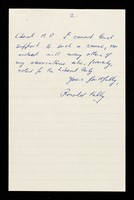 2.
Liberal M.P. I cannot lend
support to such a cause, nor
indeed will many others of
my association who formerly
voted for the Liberal Party.
Yours faithfully,
Ronald Kelly